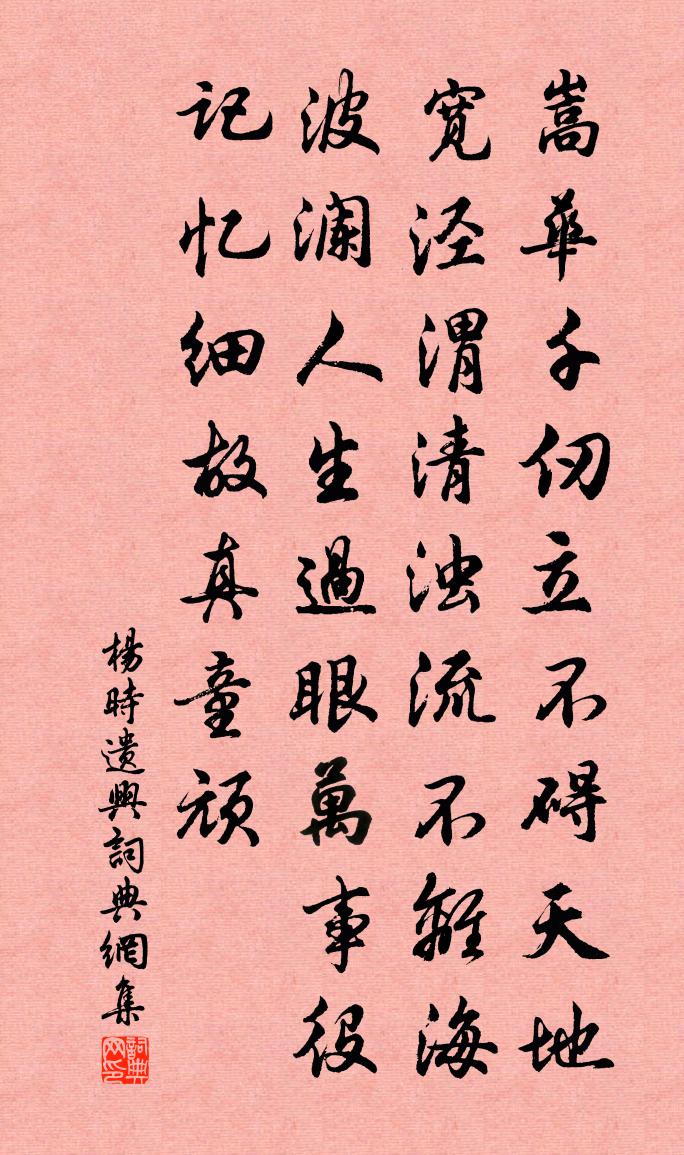 嵩華千仞立不碍天地
寛泾渭清浊流不離海
波澜人生過眼萬事役
记忆细故真童顽
楊時遗興詞典網集
詞典网印